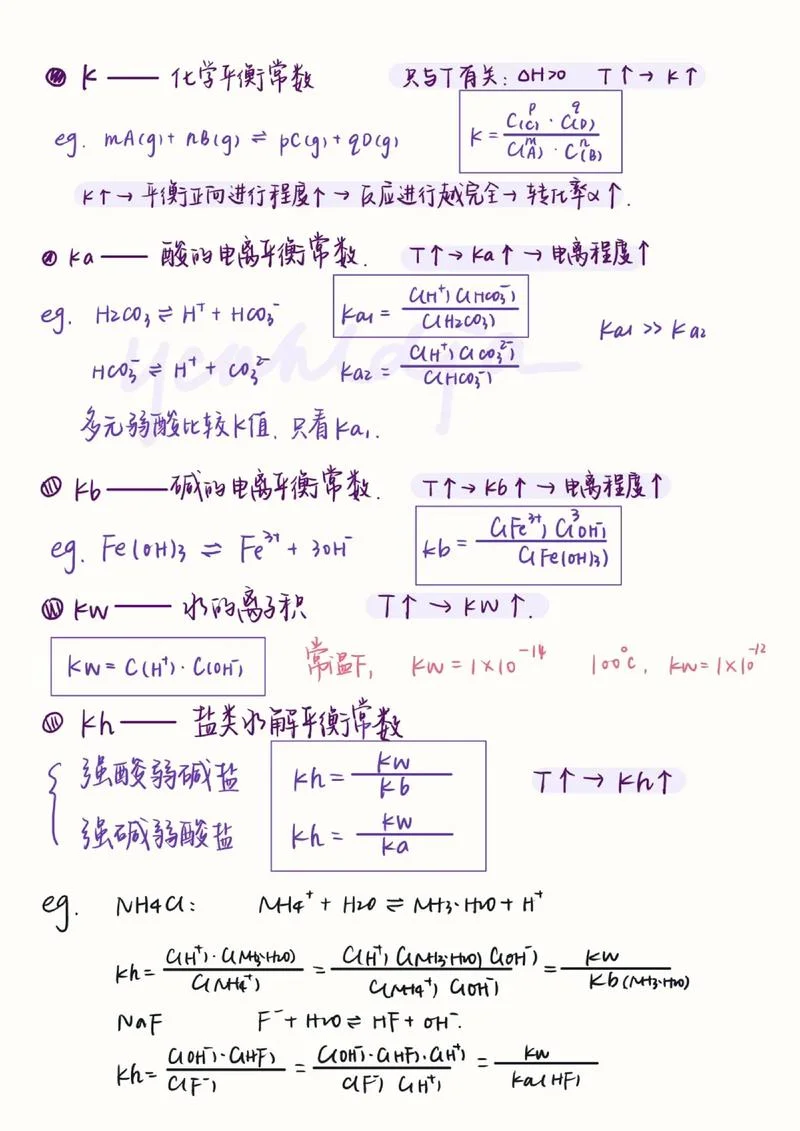 K —— 化学平衡常数 只与T有关: ΔH>0 T↑→ K↑
eg. mA(g) + nB(g) ⇌ pC(g) + qD(g) K = C(C)^p · C(D)^q / C(A)^m · C(B)^n
K↑ → 平衡正向进行程度↑ → 反应进行越完全 → 转化率α↑.
Ka —— 酸的电离平衡常数. T↑→Ka↑→电离程度↑
eg. H2CO3 ⇌ H⁺ + HCO3⁻ Ka1 = C(H⁺) C(HCO3⁻) / C(H2CO3) Ka1 >> Ka2
HCO3⁻ ⇌ H⁺ + CO3²⁻ Ka2 = C(H⁺) C(CO3²⁻) / C(HCO3⁻)
多元弱酸比较K值, 只看Ka1.
Kb —— 碱的电离平衡常数. T↑→Kb↑→电离程度↑
eg. Fe(OH)3 ⇌ Fe³⁺ + 3OH⁻ Kb = C(Fe³⁺) C(OH⁻)³ / C(Fe(OH)3)
Kw —— 水的离子积 T↑→KW↑.
KW = C(H⁺) · C(OH⁻) 常温下, KW = 1×10⁻¹⁴ 100℃, KW = 1×10⁻¹²
Kh —— 盐类水解平衡常数
强酸弱碱盐 Kh = KW / Kb T↑→Kh↑
强碱弱酸盐 Kh = KW / Ka
eg. NH4Cl: NH4⁺ + H2O ⇌ NH3·H2O + H⁺
Kh = C(H⁺)·C(NH3·H2O) / C(NH4⁺) = C(H⁺) C(NH3·H2O) C(OH⁻) / C(NH4⁺) C(OH⁻) = KW / Kb(NH3·H2O)
NaF F⁻ + H2O ⇌ HF + OH⁻.
Kh = C(OH⁻)·C(HF) / C(F⁻) = C(OH⁻)·C(HF)·C(H⁺) / C(F⁻) C(H⁺) = KW / Ka(HF)